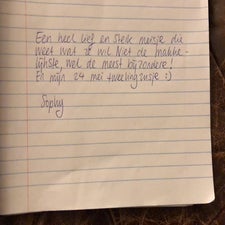 Een heel lief en sterk meisje die
weet wat ze wil. Niet de makke-
lijkste, wel de meest bijzondere!
En mijn 24 mei tweelingzusje :)
Sophy